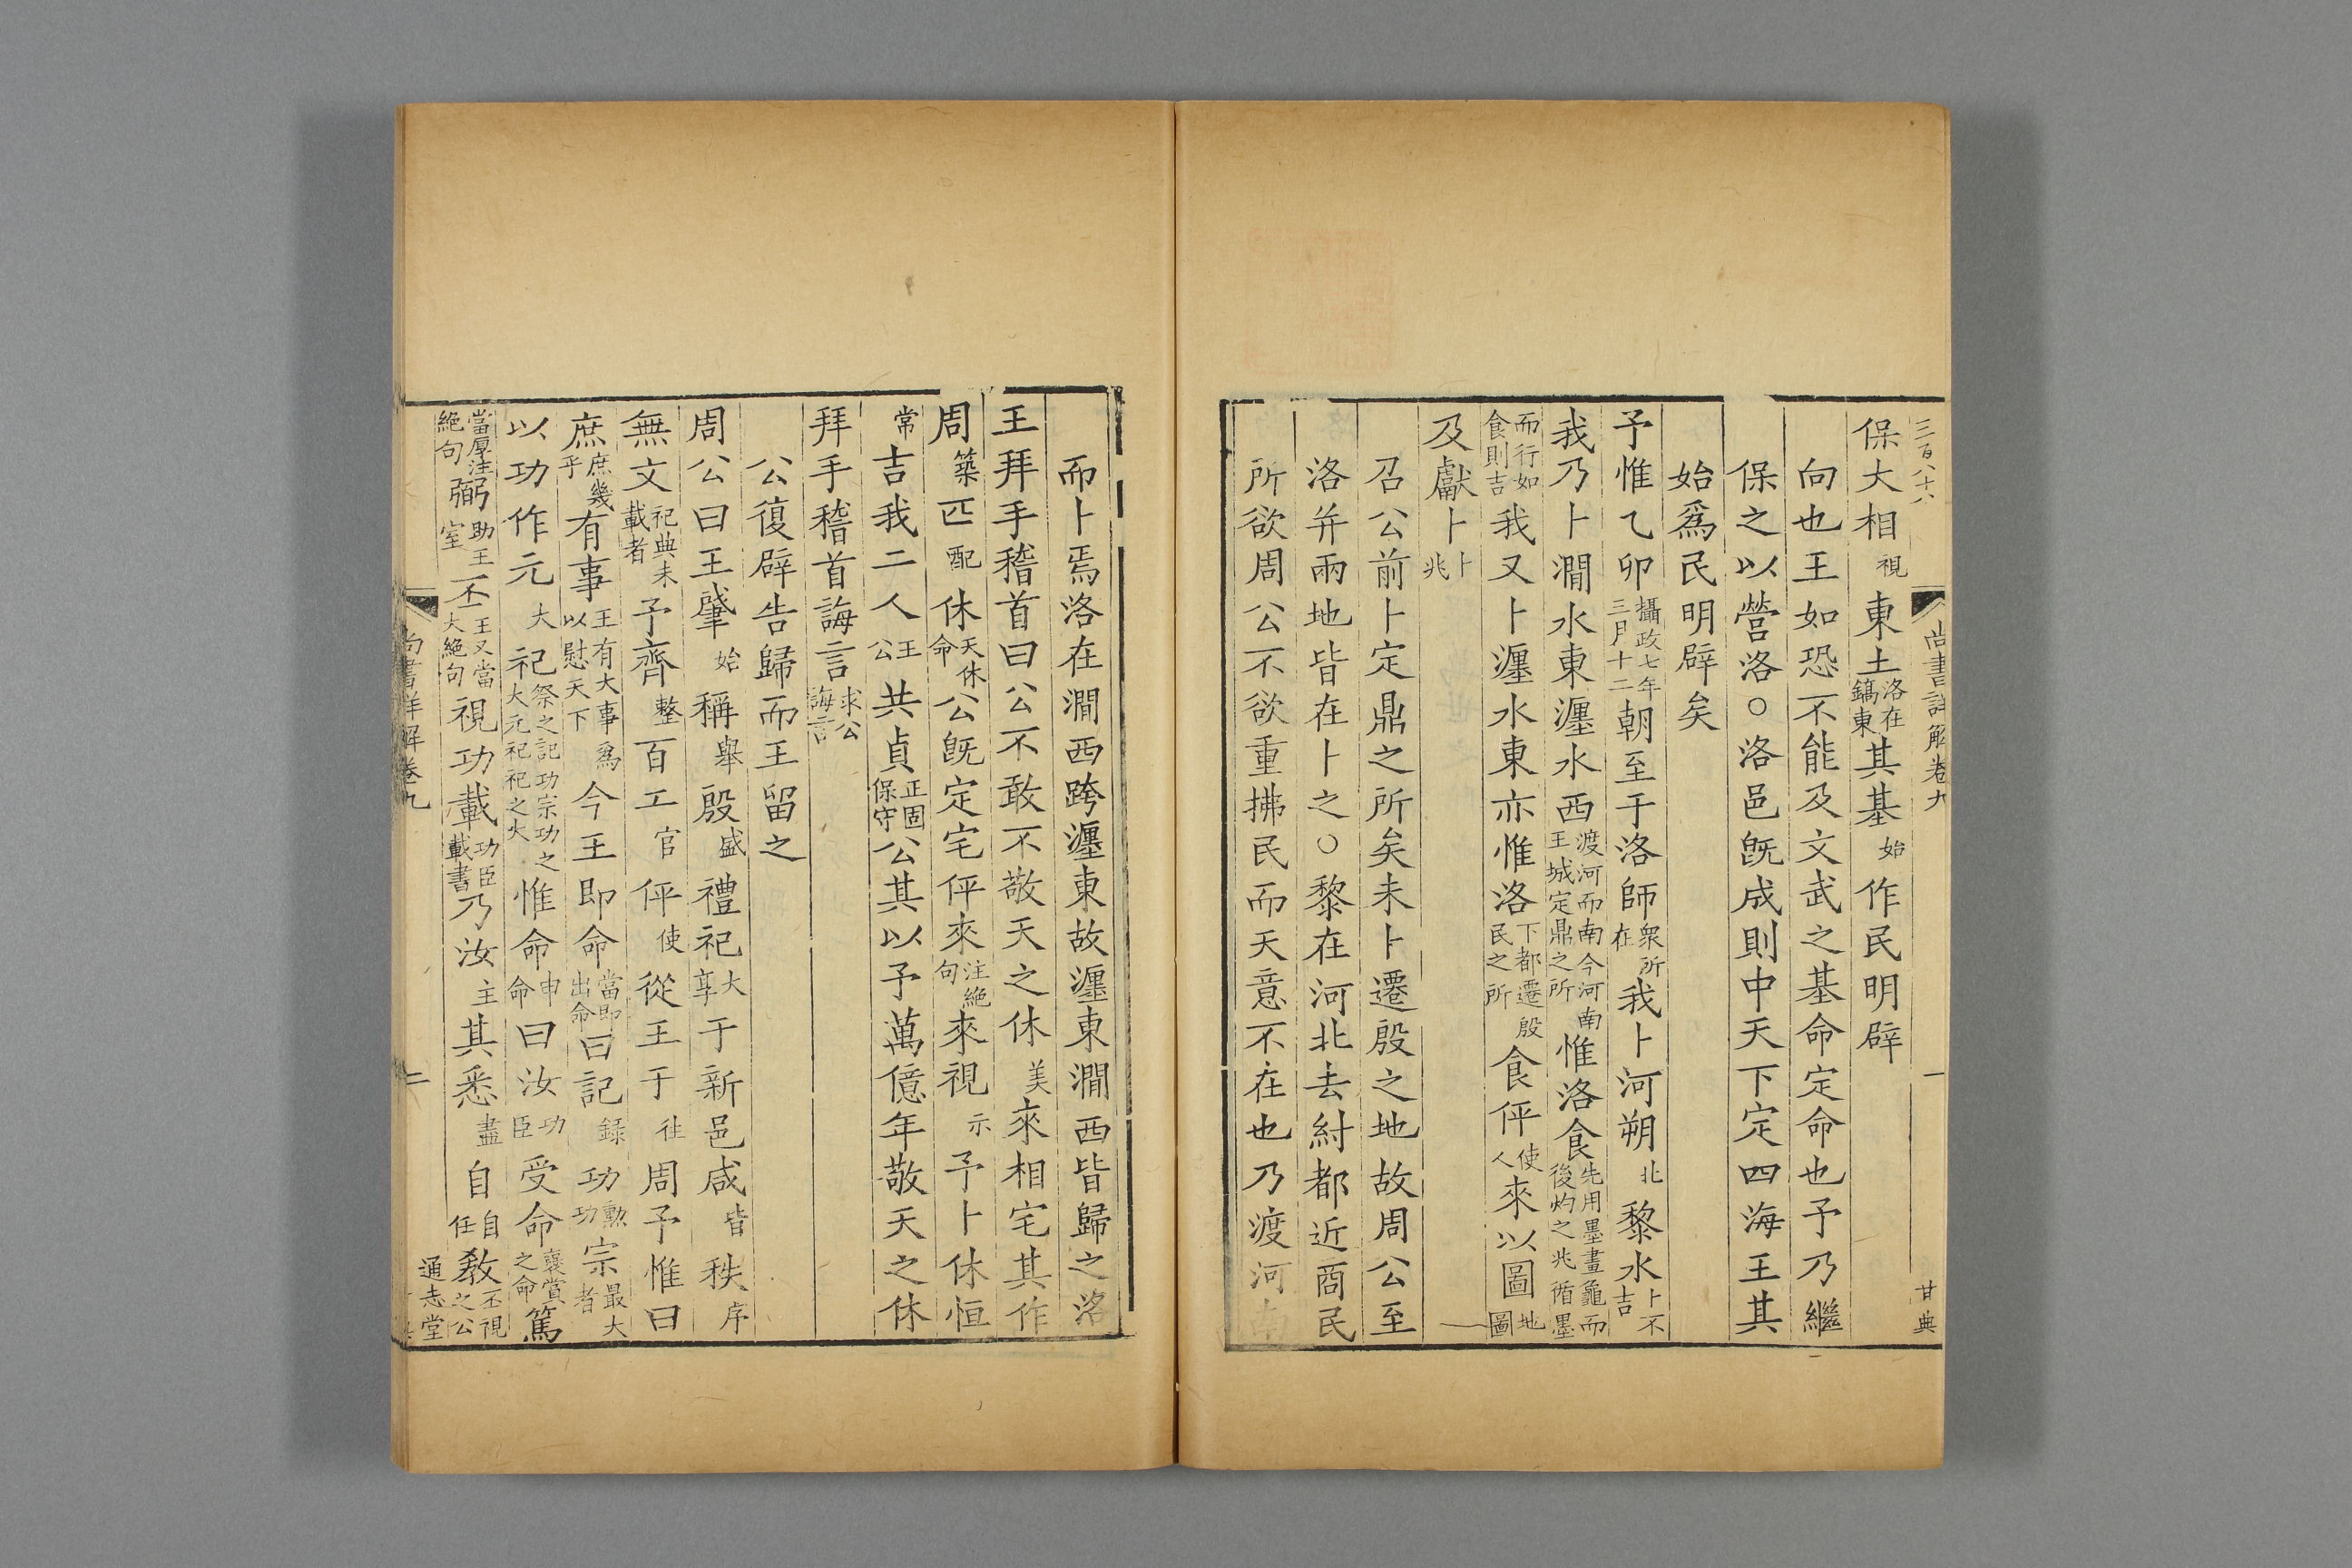 三百八十六
尚書詳解卷九
一
甘典
保大相視東土洛在鎬東其基始作民明辟
向也王如恐不能及文武之基命定命也予乃繼
保之以營洛○洛邑旣成則中天下定四海王其
始爲民明辟矣
予惟乙卯攝政七年三月十二朝至于洛師衆所在我卜河朔北黎水卜不吉
我乃卜澗水東瀍水西渡河而南今河南王城定鼎之所惟洛食先用墨畫龜而後灼之兆循墨
而行如食則吉我又卜瀍水東亦惟洛下都遷殷民之所食伻使人來以圖地圖
及獻卜卜兆
召公前卜定鼎之所矣未卜遷殷之地故周公至
洛并兩地皆在卜之○黎在河北去紂都近商民
所欲周公不欲重拂民而天意不在也乃渡河南
而卜焉洛在澗西跨瀍東故瀍東澗西皆歸之洛
王拜手稽首曰公不敢不敬天之休美來相宅其作
周築匹配休天休命公旣定宅伻來注絕句來視示予卜休恒
常吉我二人王公共貞正固保守公其以予萬億年敬天之休
拜手稽首誨言求公誨言
公復辟告歸而王留之
周公曰王肇始稱舉殷盛禮祀大享于新邑咸皆秩序
無文祀典未載者予齊整百工官伻使從王于往周予惟曰
庶庶幾乎有事王有大事爲以慰天下今王即命當即出命曰記錄功勲功宗最大者
以功作元大祀祭之記功宗功之大元祀祀之大惟命申命曰汝功臣受命襃賞之命篤
當厚注絕句弼助王室丕王又當大絕句視功載功臣載書乃汝主其悉盡自自任敎丕視之公
尚書詳解卷九
二
通志堂